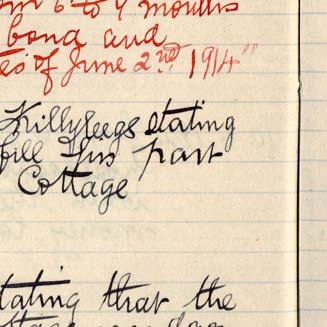 6 to 9 months
bong and
of June 2nd. 1914"
Killybegs stating
fill this part
Cottage
stating that the